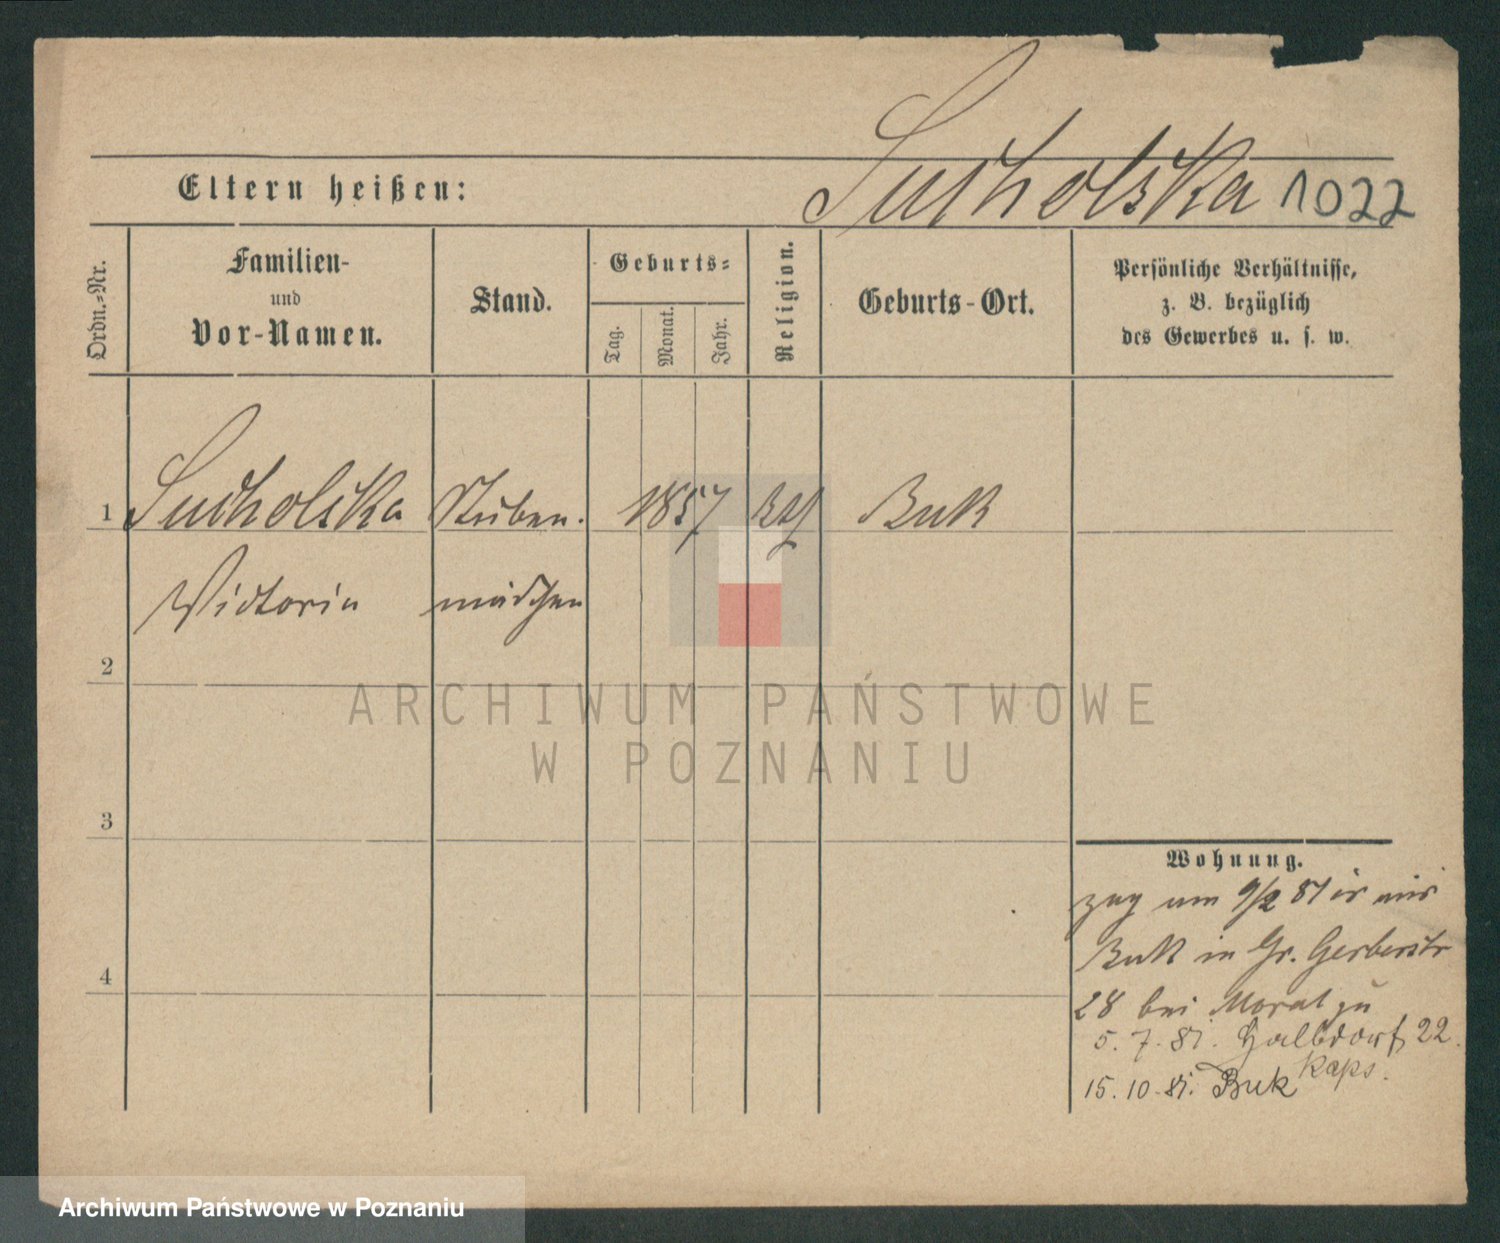 Sucholska 1022
Eltern heißen:
Ordn.-Nr.
Familien-
und
Vor-Namen.
Stand.
Geburts-
Tag.
Monat.
Jahr.
Religion.
Geburts-Ort.
Persönliche Verhältnisse,
z. B. bezüglich
des Gewerbes u. s. w.
1 Sucholska Stuben. 1857 Buk
Victoria mädchen
2
3
4
Wohnung.
zug am 9/2 81
Buk in Gr. Gerberstr
28 bei Moral zu
5. 7. 81. Halbdorf 22.
Kaps.
15. 10. 81. Buk
ARCHIWUM PAŃSTWOWE
W POZNANIU
Archiwum Państwowe w Poznaniu